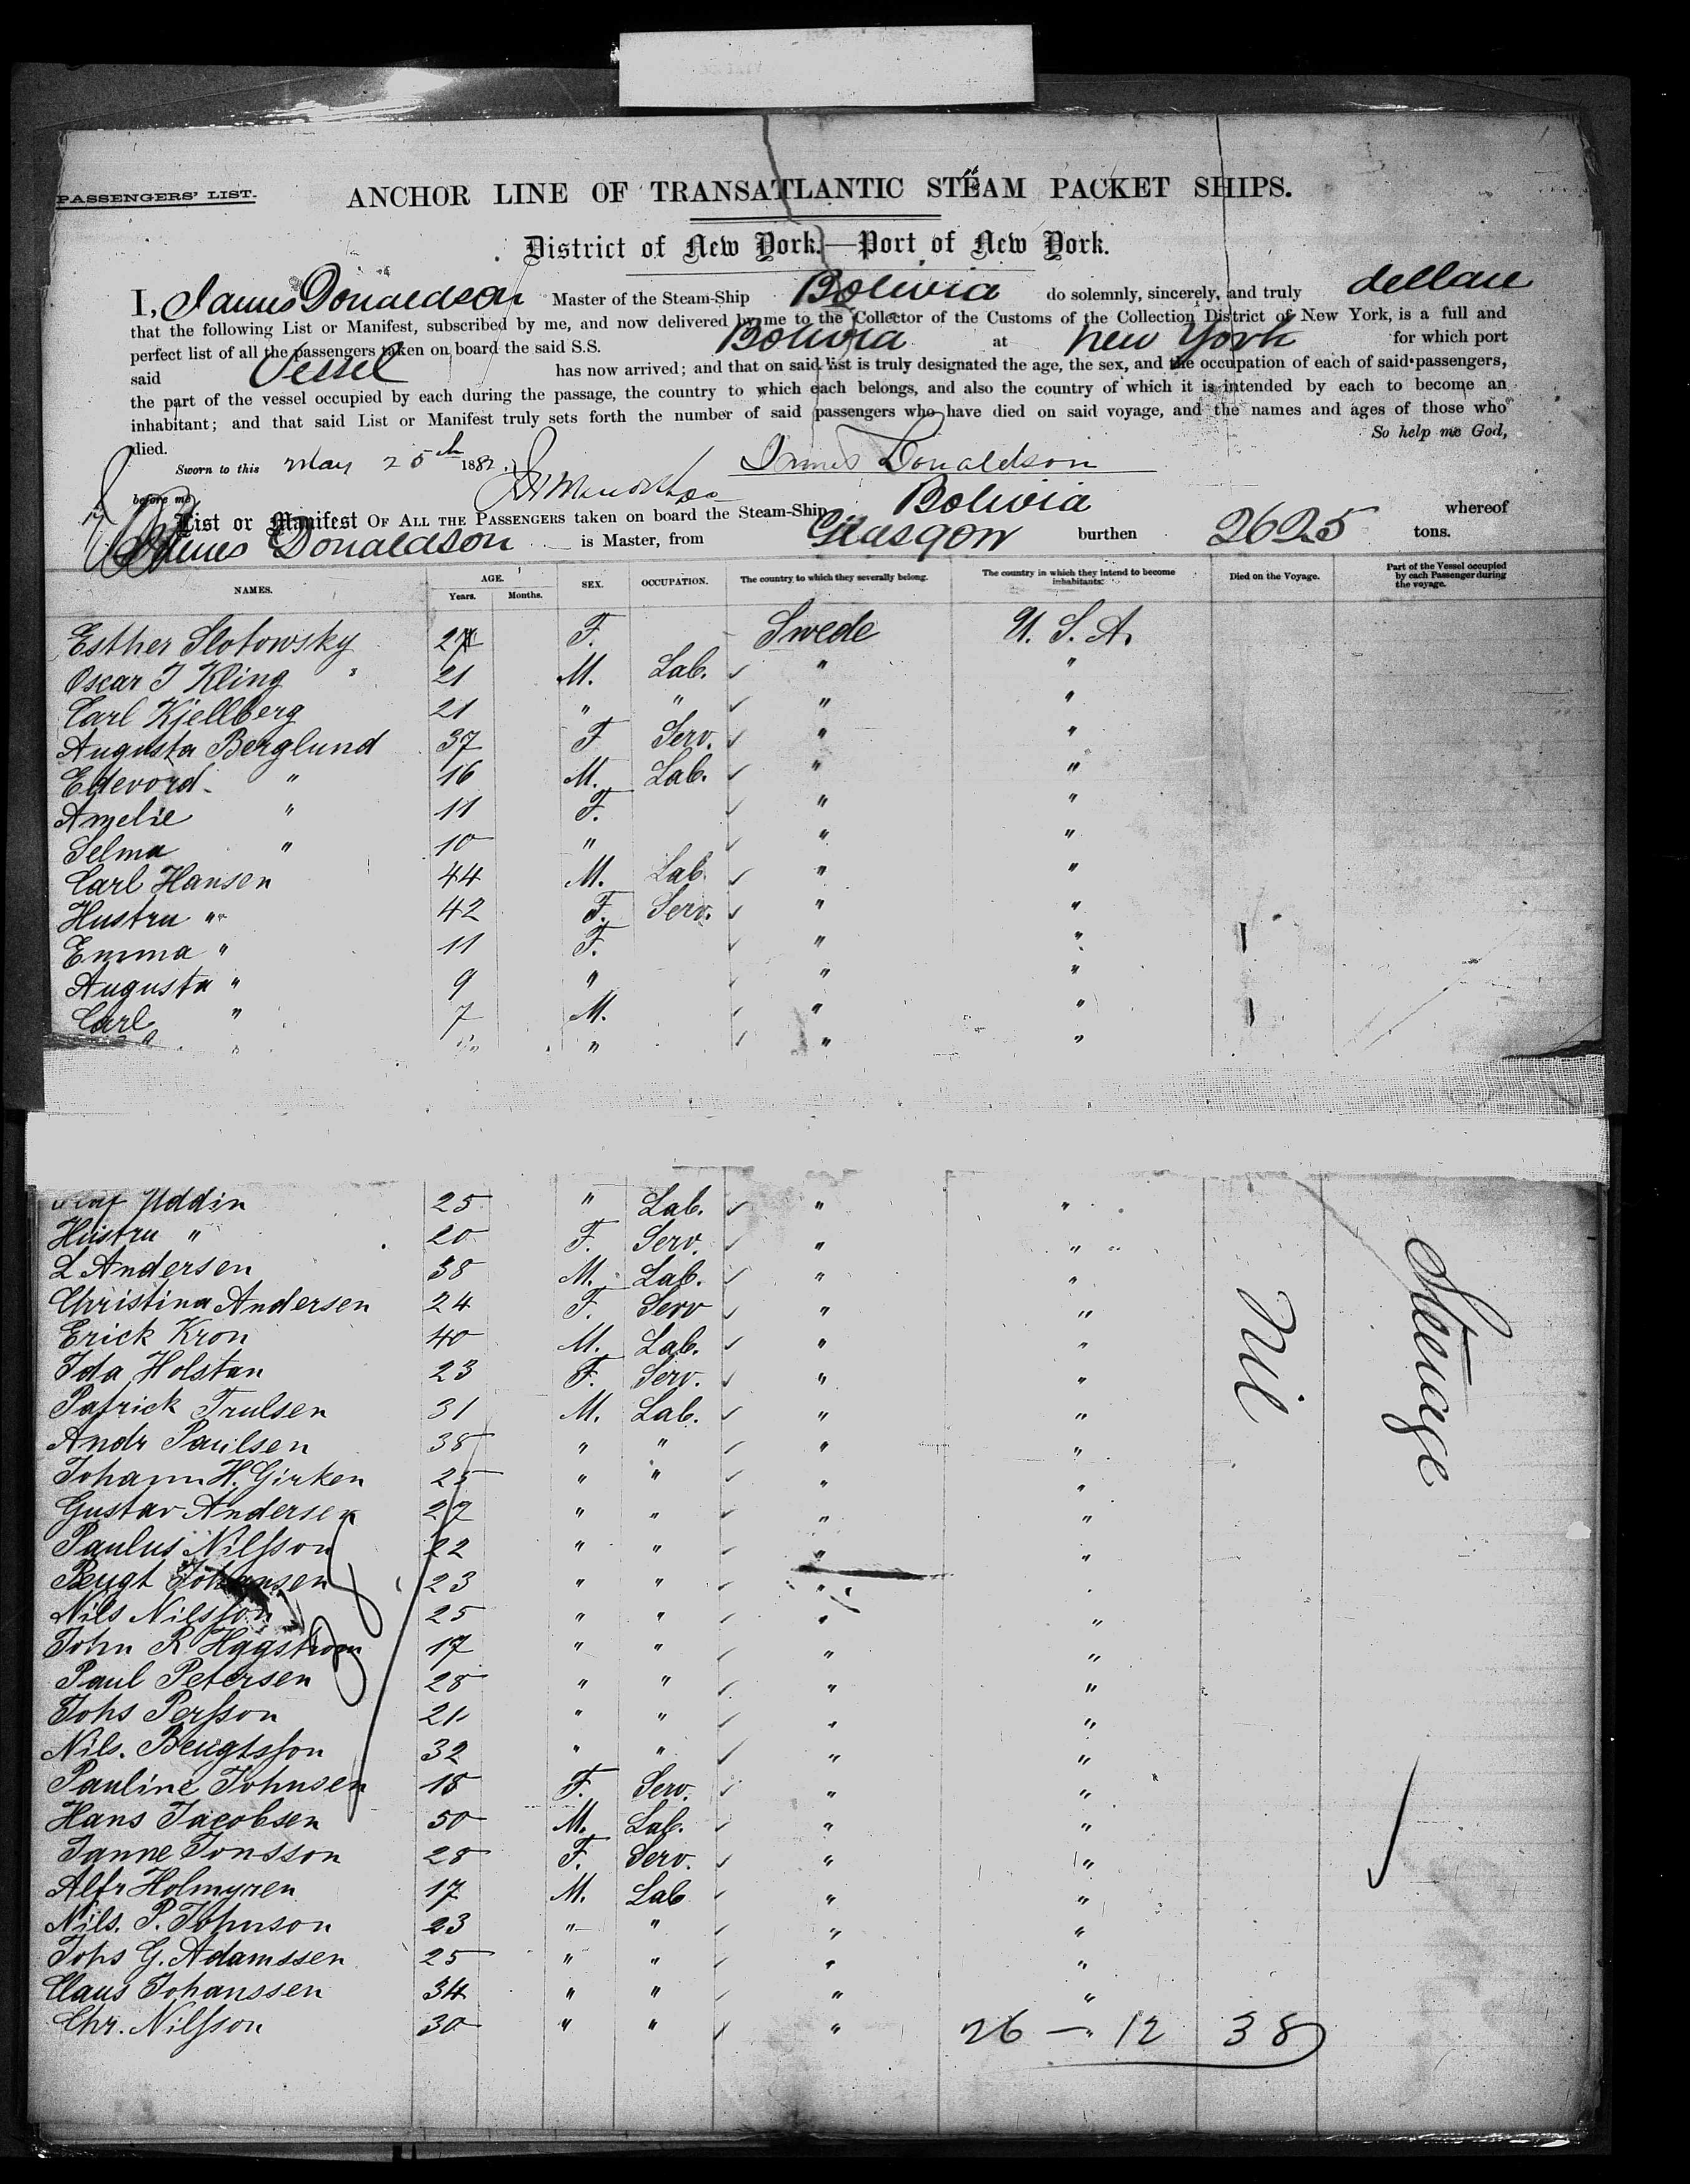 PASSENGERS' LIST.
ANCHOR LINE OF TRANSATLANTIC STEAM PACKET SHIPS.
District of New York.—Port of New York.
I, James Donaldson Master of the Steam-Ship Bolivia do solemnly, sincerely, and truly dellare
that the following List or Manifest, subscribed by me, and now delivered by me to the Collector of the Customs of the Collection District of New York, is a full and
perfect list of all the passengers taken on board the said S.S. Bolivia at New York for which port
said Vessel has now arrived; and that on said list is truly designated the age, the sex, and the occupation of each of said passengers,
the part of the vessel occupied by each during the passage, the country to which each belongs, and also the country of which it is intended by each to become an
inhabitant; and that said List or Manifest truly sets forth the number of said passengers who have died on said voyage, and the names and ages of those who
died. So help me God,
Sworn to this May 25th 1882. James Donaldson
before me
List or Manifest OF ALL THE PASSENGERS taken on board the Steam-Ship Bolivia whereof
James Donaldson is Master, from Glasgow burthen 2625 tons.
NAMES. AGE. Years. Months. SEX. OCCUPATION. The country to which they severally belong. The country in which they intend to become inhabitants. Died on the Voyage. Part of the Vessel occupied by each Passenger during the voyage.
Esther Slotowsky 27 F. Swede U. S. A.
Oscar J Kling 21 M. Lab. " "
Carl Kjellberg 21 " " " "
Augusta Berglund 37 F Serv. " "
Edevord " 16 M. Lab. " "
Amelie " 11 F. " "
Selma " 10 " " "
Carl Hansen 44 M. Lab. " "
Hustru " 42 F. Serv. " "
Emma " 11 F. " "
Augusta " 9 " " "
Carl " 7 M. " "
" " " "
Uddin 25 " Lab. " "
Hustru " 20 F. Serv. " "
L Andersen 38 M. Lab. " "
Christina Andersen 24 F. Serv " "
Erick Kron 40 M. Lab. " "
Ida Holstan 23 F. Serv. " "
Patrick Trulsen 31 M. Lab. " "
Andr Paulsen 38 " " " "
Johann H. Girken 25 " " " "
Gustav Andersen 27 " " " "
Paulus Nilsson 22 " " " "
Bengt Johansen 23 " " " "
Nils Nilsson 25 " " " "
John R Hagstrom 17 " " " "
Paul Petersen 28 " " " "
Johs Persson 21 " " " "
Nils. Bengtsson 32 " " " "
Pauline Johnsen 18 F. Serv. " "
Hans Jacobsen 50 M. Lab. " "
Janne Jonsson 28 F. Serv. " "
Alfr Holmgren 17 M. Lab " "
Nils. P. Johnson 23 " " " "
Johs G. Adamssen 25 " " " "
Claus Johanssen 34 " " " "
Chr. Nilsson 30 " " " 26 — " 12 38
Nil
Steerage